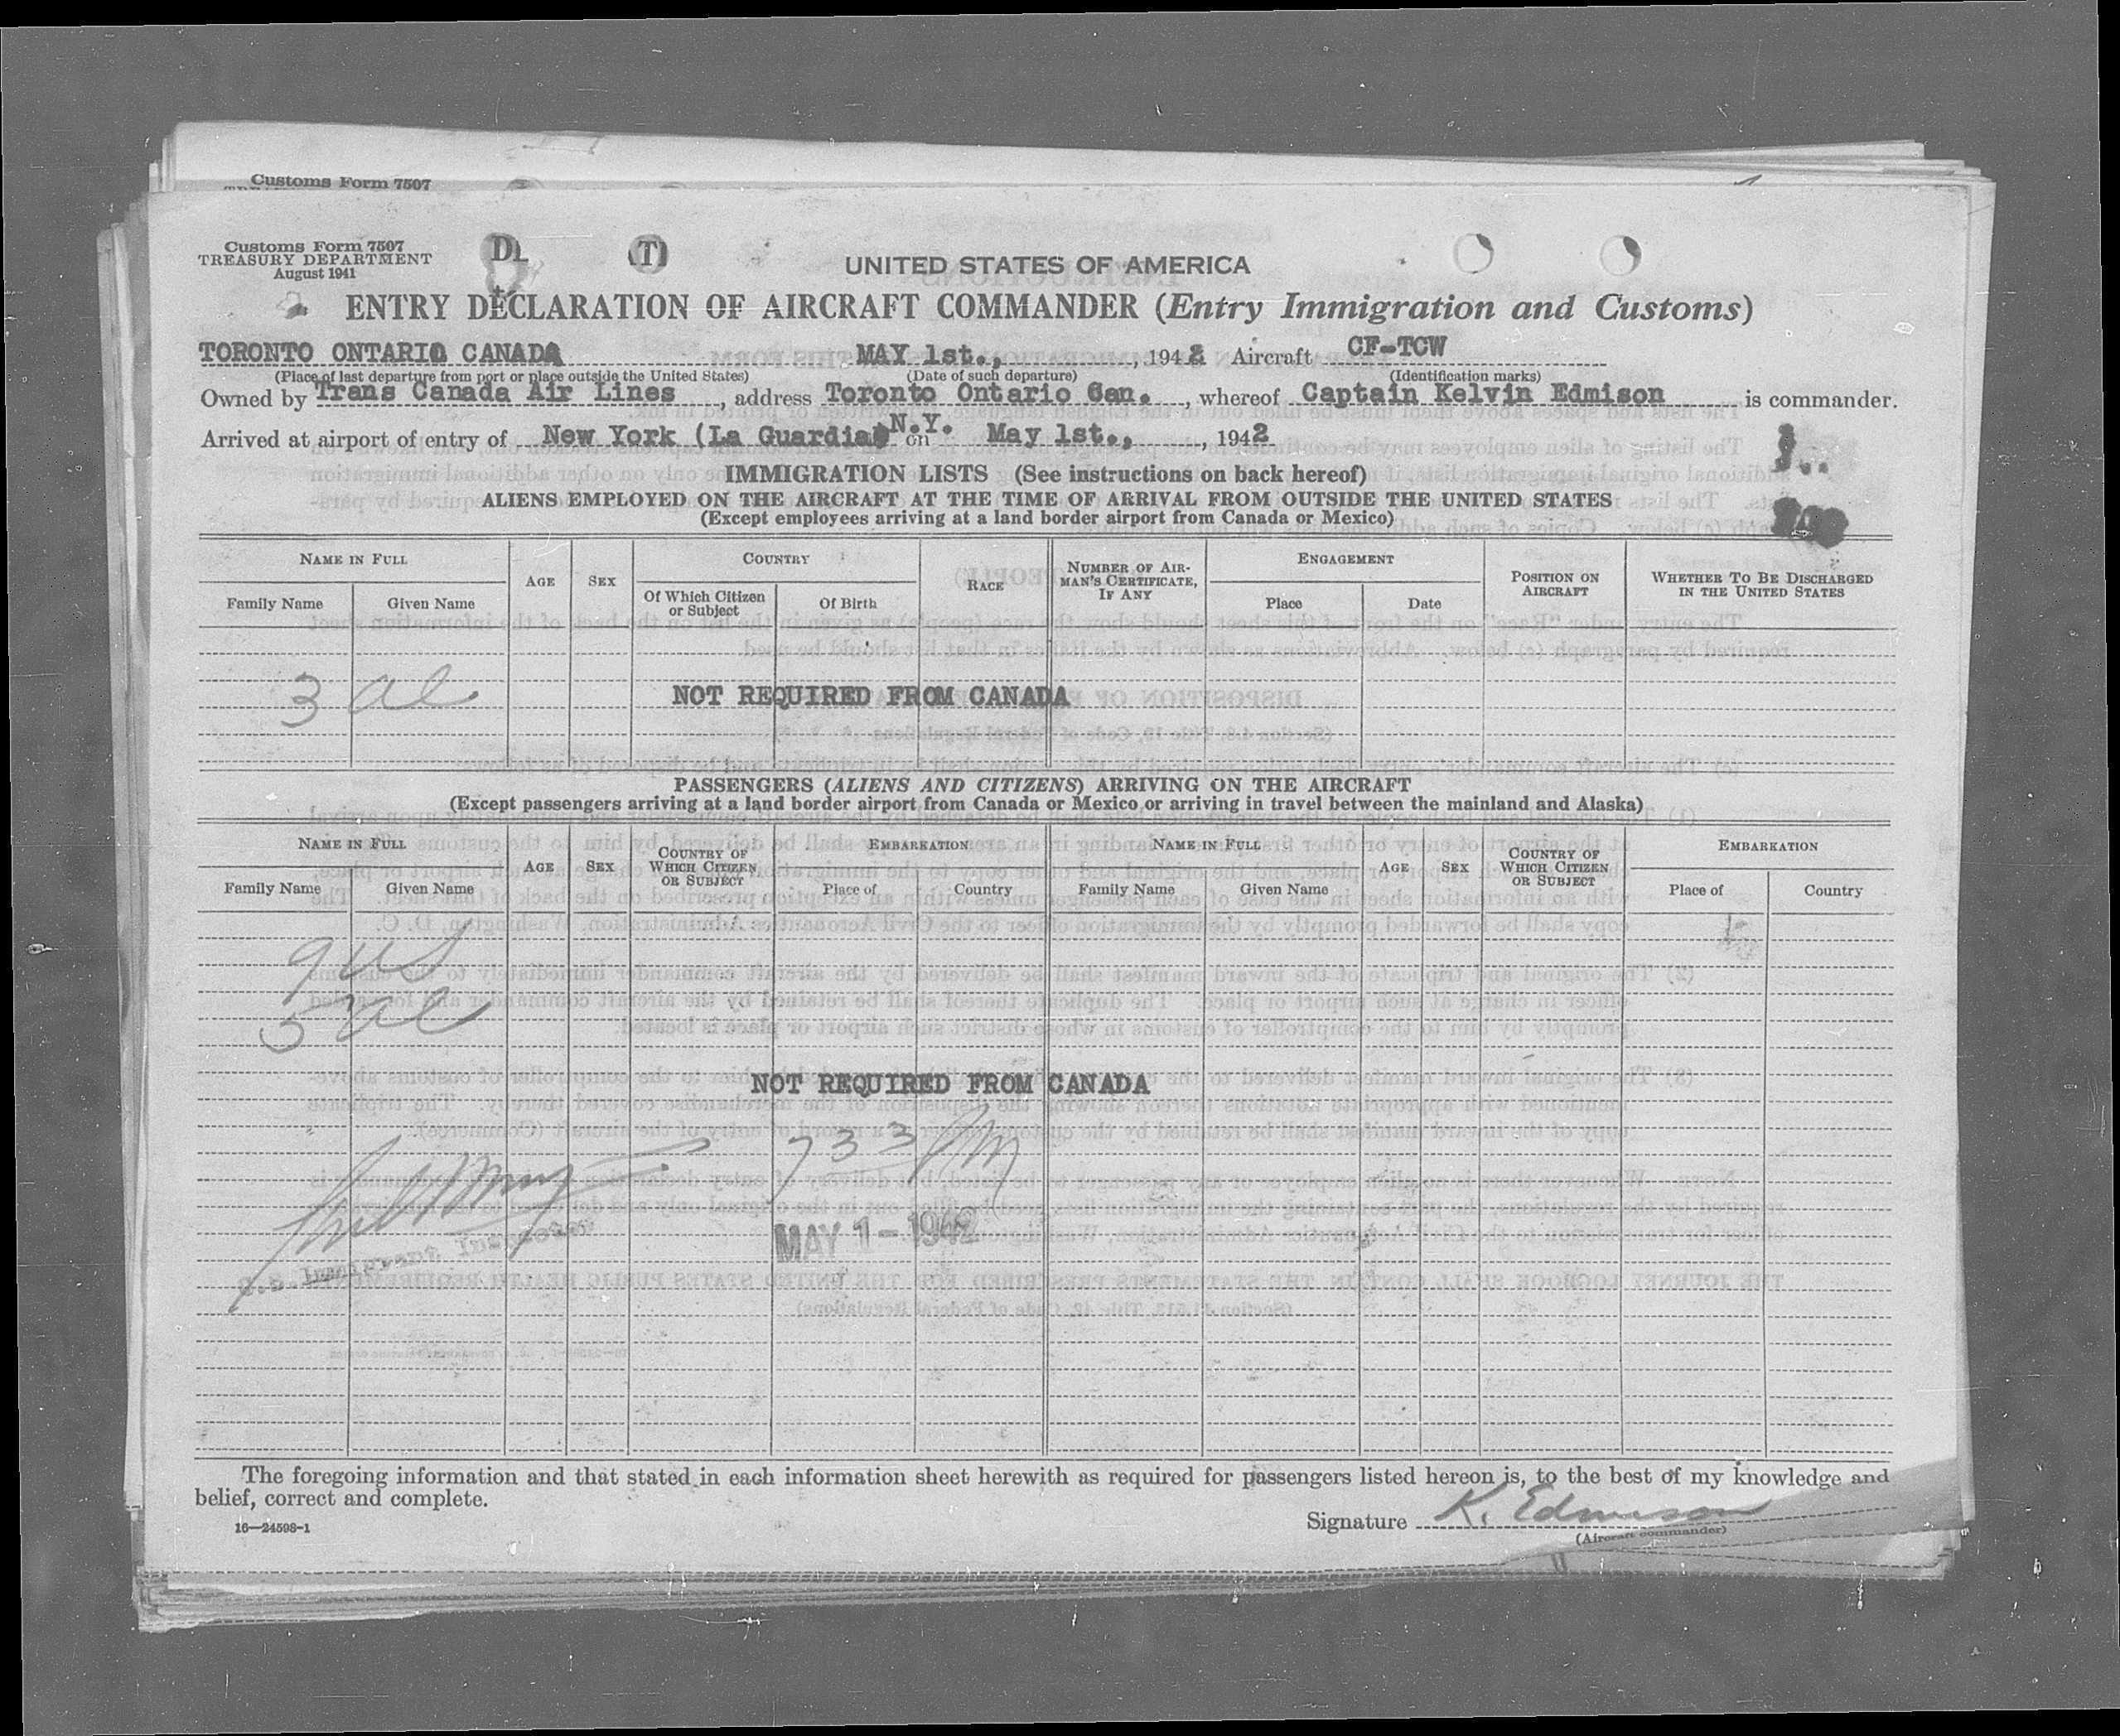 Customs Form 7507
Customs Form 7507
TREASURY DEPARTMENT
August 1941
UNITED STATES OF AMERICA
ENTRY DECLARATION OF AIRCRAFT COMMANDER (Entry Immigration and Customs)
TORONTO ONTARIO CANADA MAY 1st., , 1942 Aircraft CF-TCW
(Place of last departure from port or place outside the United States) (Date of such departure) (Identification marks)
Owned by Trans Canada Air Lines , address Toronto Ontario Can. , whereof Captain Kelvin Edmison is commander.
Arrived at airport of entry of New York (La Guardia) N.Y. on May 1st., , 1942
IMMIGRATION LISTS (See instructions on back hereof)
ALIENS EMPLOYED ON THE AIRCRAFT AT THE TIME OF ARRIVAL FROM OUTSIDE THE UNITED STATES
(Except employees arriving at a land border airport from Canada or Mexico)
NAME IN FULL AGE SEX COUNTRY RACE NUMBER OF AIRMAN'S CERTIFICATE, IF ANY ENGAGEMENT POSITION ON AIRCRAFT WHETHER TO BE DISCHARGED IN THE UNITED STATES
Family Name Given Name Of Which Citizen or Subject Of Birth Place Date
3 al
NOT REQUIRED FROM CANADA
PASSENGERS (ALIENS AND CITIZENS) ARRIVING ON THE AIRCRAFT
(Except passengers arriving at a land border airport from Canada or Mexico or arriving in travel between the mainland and Alaska)
NAME IN FULL AGE SEX COUNTRY OF WHICH CITIZEN OR SUBJECT EMBARKATION NAME IN FULL AGE SEX COUNTRY OF WHICH CITIZEN OR SUBJECT EMBARKATION
Family Name Given Name Place of Country Family Name Given Name Place of Country
9 US
5 al
NOT REQUIRED FROM CANADA
733 PM
MAY 1 - 1942
U.S. Immigrant Inspector
The foregoing information and that stated in each information sheet herewith as required for passengers listed hereon is, to the best of my knowledge and
belief, correct and complete.
16—24598-1
Signature K. Edmison
(Aircraft commander)